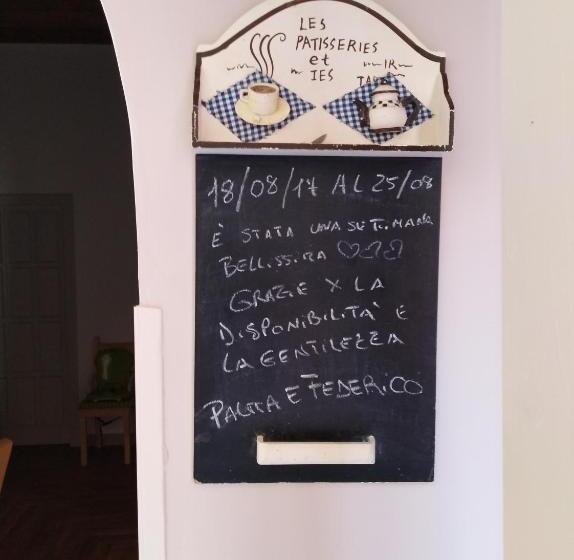 LES
PATISSERIES
et
IES
18/08/17 AL 25/08
È STATA UNA SETTIMANA
BELLISSIMA
GRAZIE X LA
DISPONIBILITA' E
LA GENTILEZZA
E FEDERICO